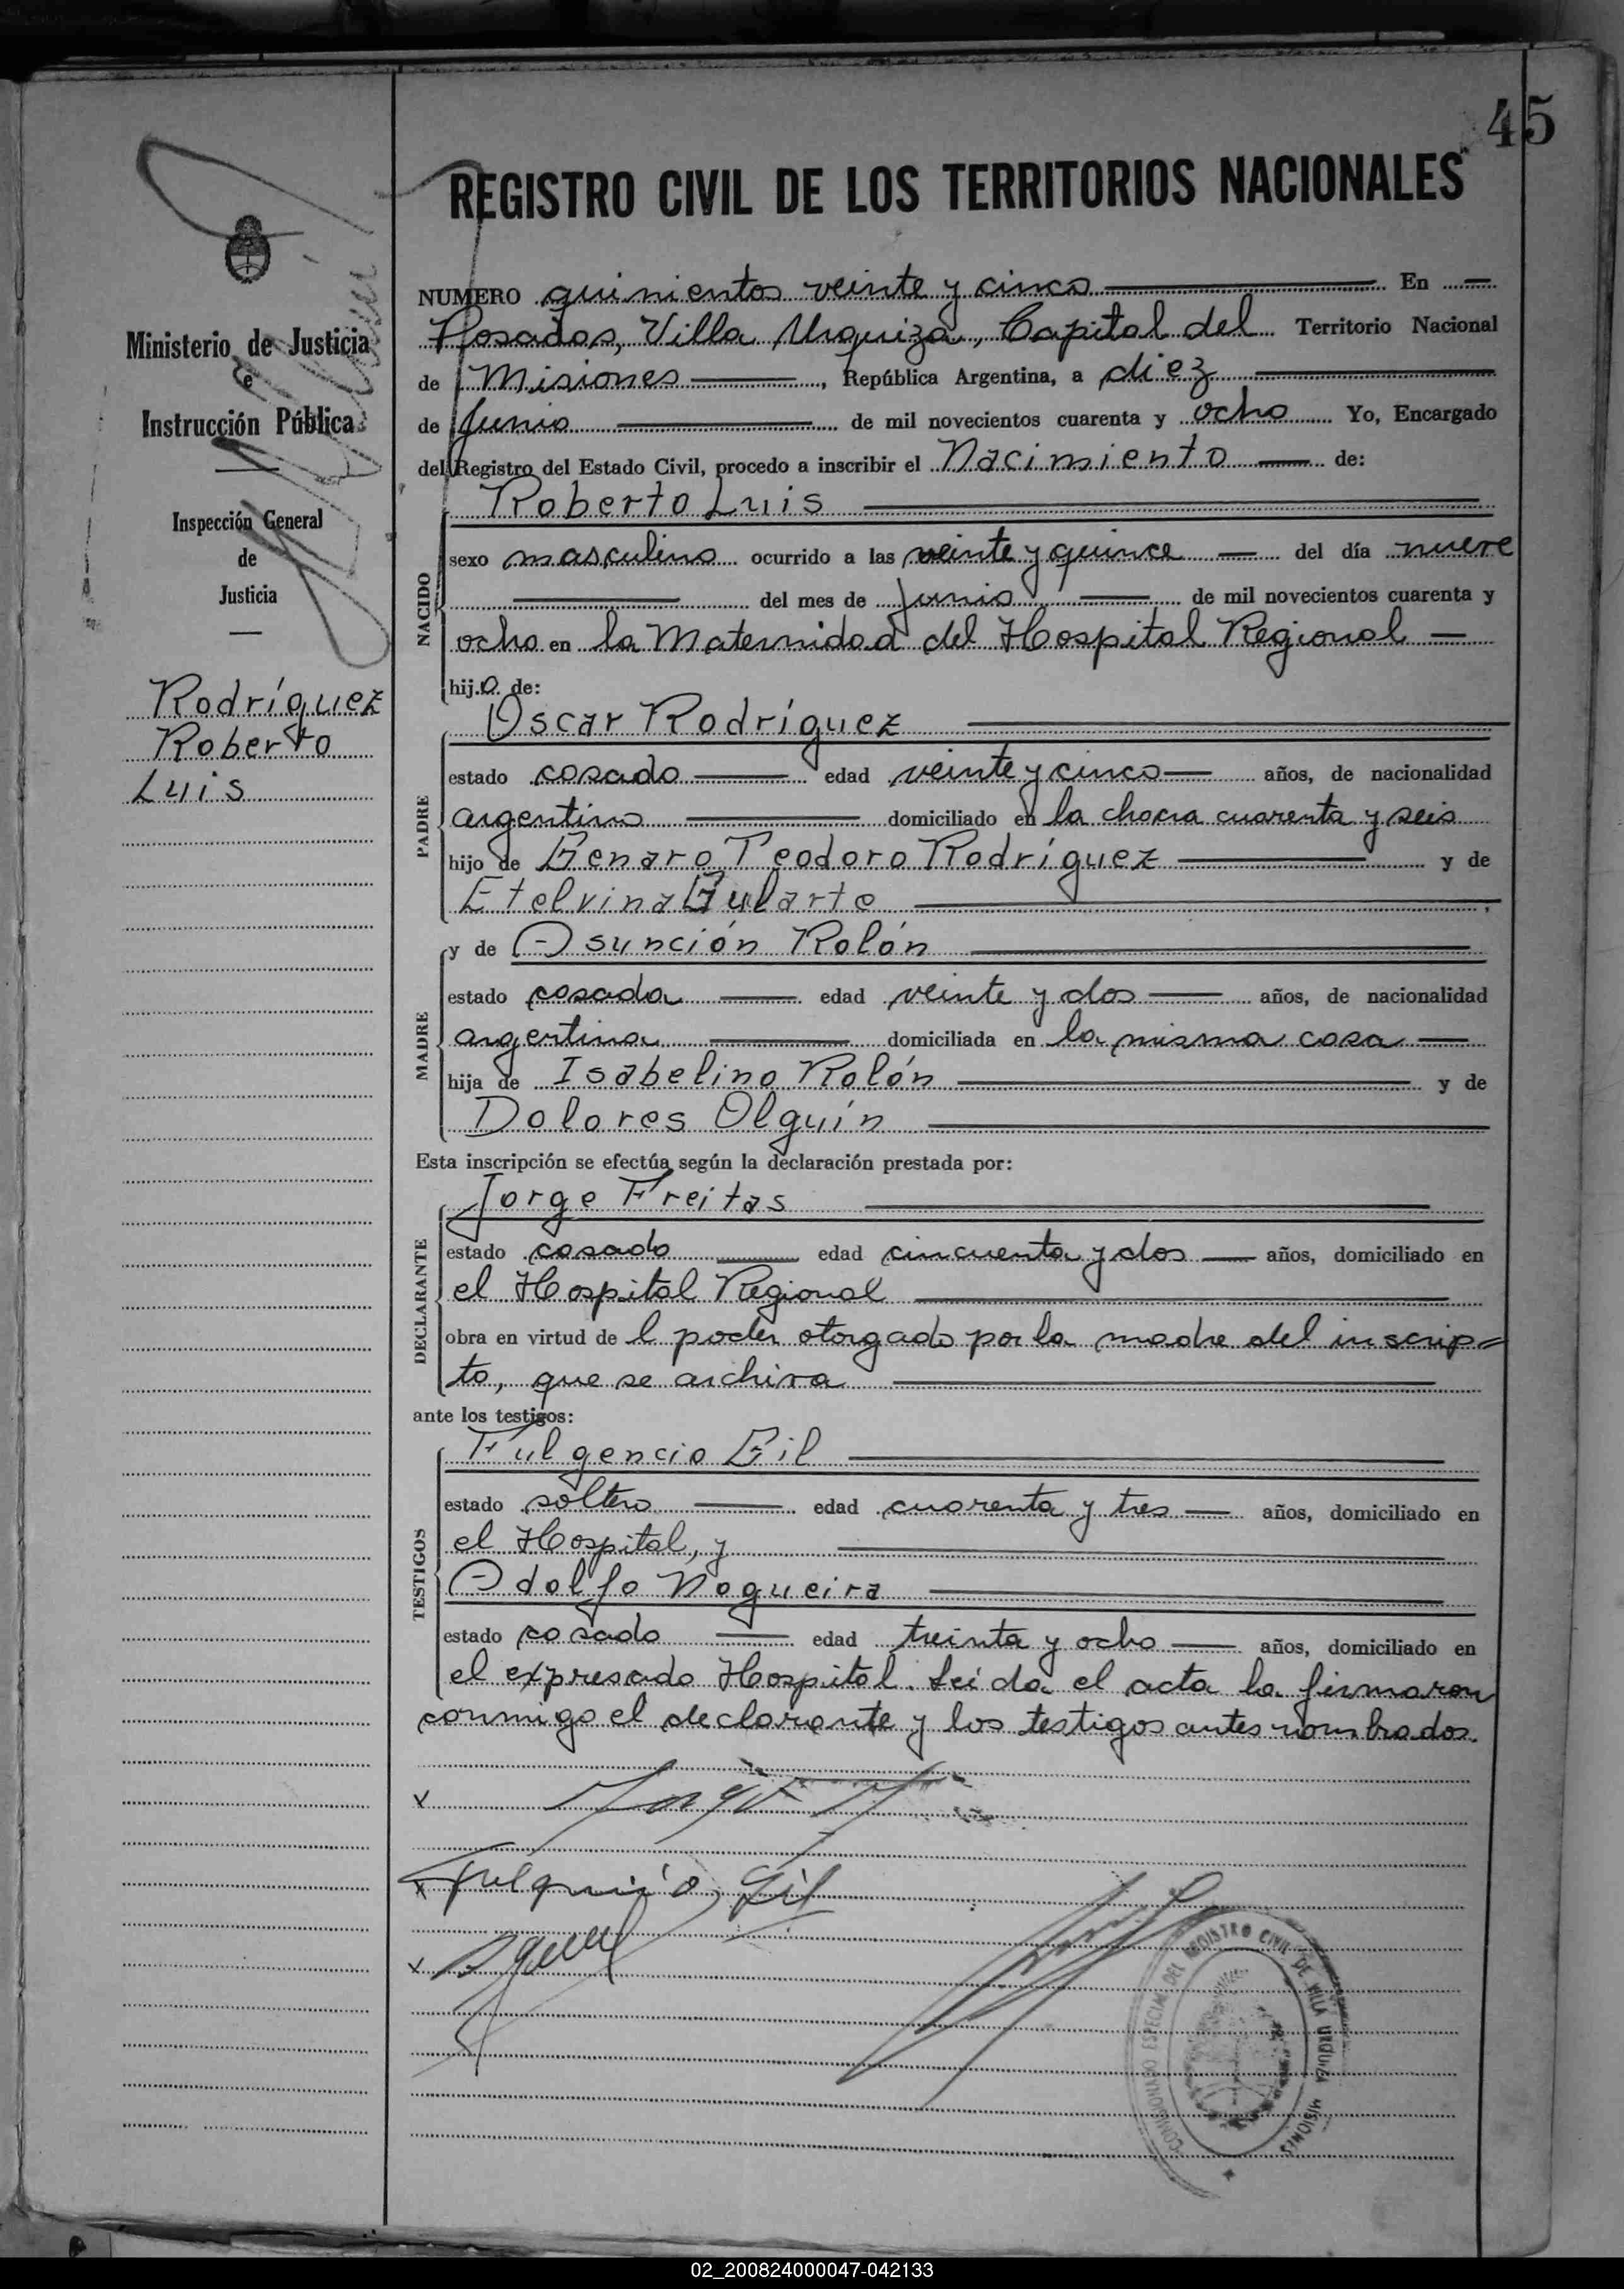 45
REGISTRO CIVIL DE LOS TERRITORIOS NACIONALES
Ministerio de Justicia
e
Instrucción Pública
Inspección General
de
Justicia
Rodríguez
Roberto
Luis
NUMERO quinientos veinte y cinco En
Posadas, Villa Urquiza, Capital del Territorio Nacional
de Misiones, República Argentina, a diez
de Junio de mil novecientos cuarenta y ocho Yo, Encargado
del Registro del Estado Civil, procedo a inscribir el Nacimiento de:
NACIDO
Roberto Luis
sexo masculino ocurrido a las veinte y quince del día nueve
del mes de Junio de mil novecientos cuarenta y
ocho en la Maternidad del Hospital Regional
hijo de:
PADRE
Oscar Rodríguez
estado casado edad veinte y cinco años, de nacionalidad
argentino domiciliado en la chacra cuarenta y seis
hijo de Genaro Teodoro Rodríguez y de
Etelvina Gularte
MADRE
y de Asunción Rolón
estado casada edad veinte y dos años, de nacionalidad
argentina domiciliada en la misma casa
hija de Isabelino Rolón y de
Dolores Olguín
Esta inscripción se efectúa según la declaración prestada por:
DECLARANTE
Jorge Freitas
estado casado edad cincuenta y dos años, domiciliado en
el Hospital Regional
obra en virtud del poder otorgado por la madre del inscrip=
to, que se archiva
ante los testigos:
TESTIGOS
Fulgencio Gil
estado soltero edad cuarenta y tres años, domiciliado en
el Hospital, y
Adolfo Nogueira
estado casado edad treinta y ocho años, domiciliado en
el expresado Hospital. Leída el acta la firmaron
conmigo el declarante y los testigos antes nombrados.
x
x Fulgencio Gil
x
COMISIONADO ESPECIAL DEL REGISTRO CIVIL DE VILLA URQUIZA MISIONES
02_200824000047-042133